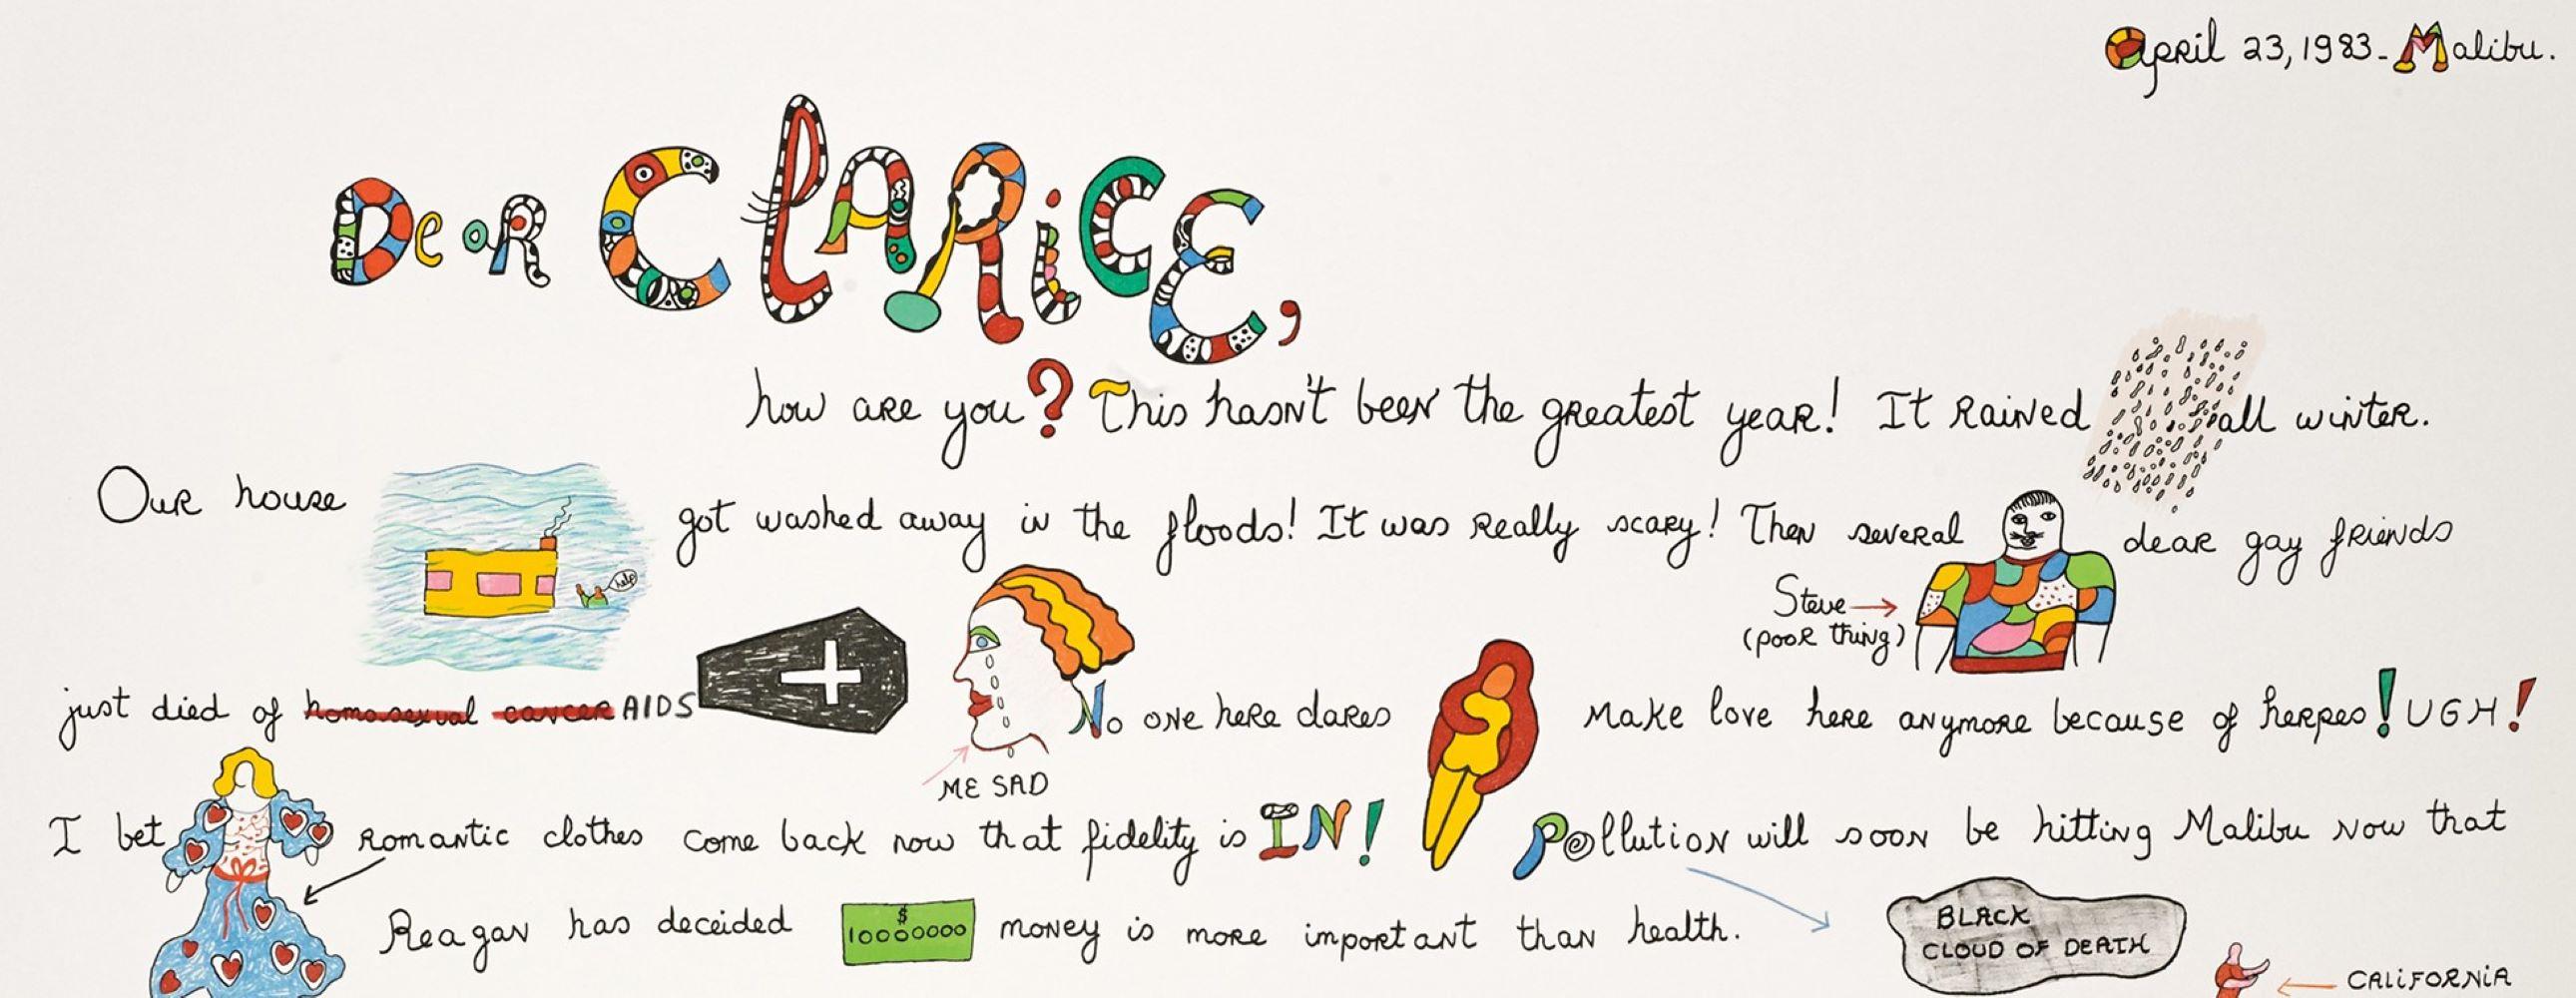 April 23, 1983 - Malibu.
Dear Clarice,
how are you? This hasn't been the greatest year! It rained all winter.
Our house got washed away in the floods! It was really scary! Then several dear gay friends
help
Steve →
(poor thing)
just died of homosexual cancer AIDS No one here dares make love here anymore because of herpes! UGH!
ME SAD
I bet romantic clothes come back now that fidelity is IN! Pollution will soon be hitting Malibu now that
Reagan has decided money is more important than health.
$
10000000
BLACK
CLOUD OF DEATH
← CALIFORNIA